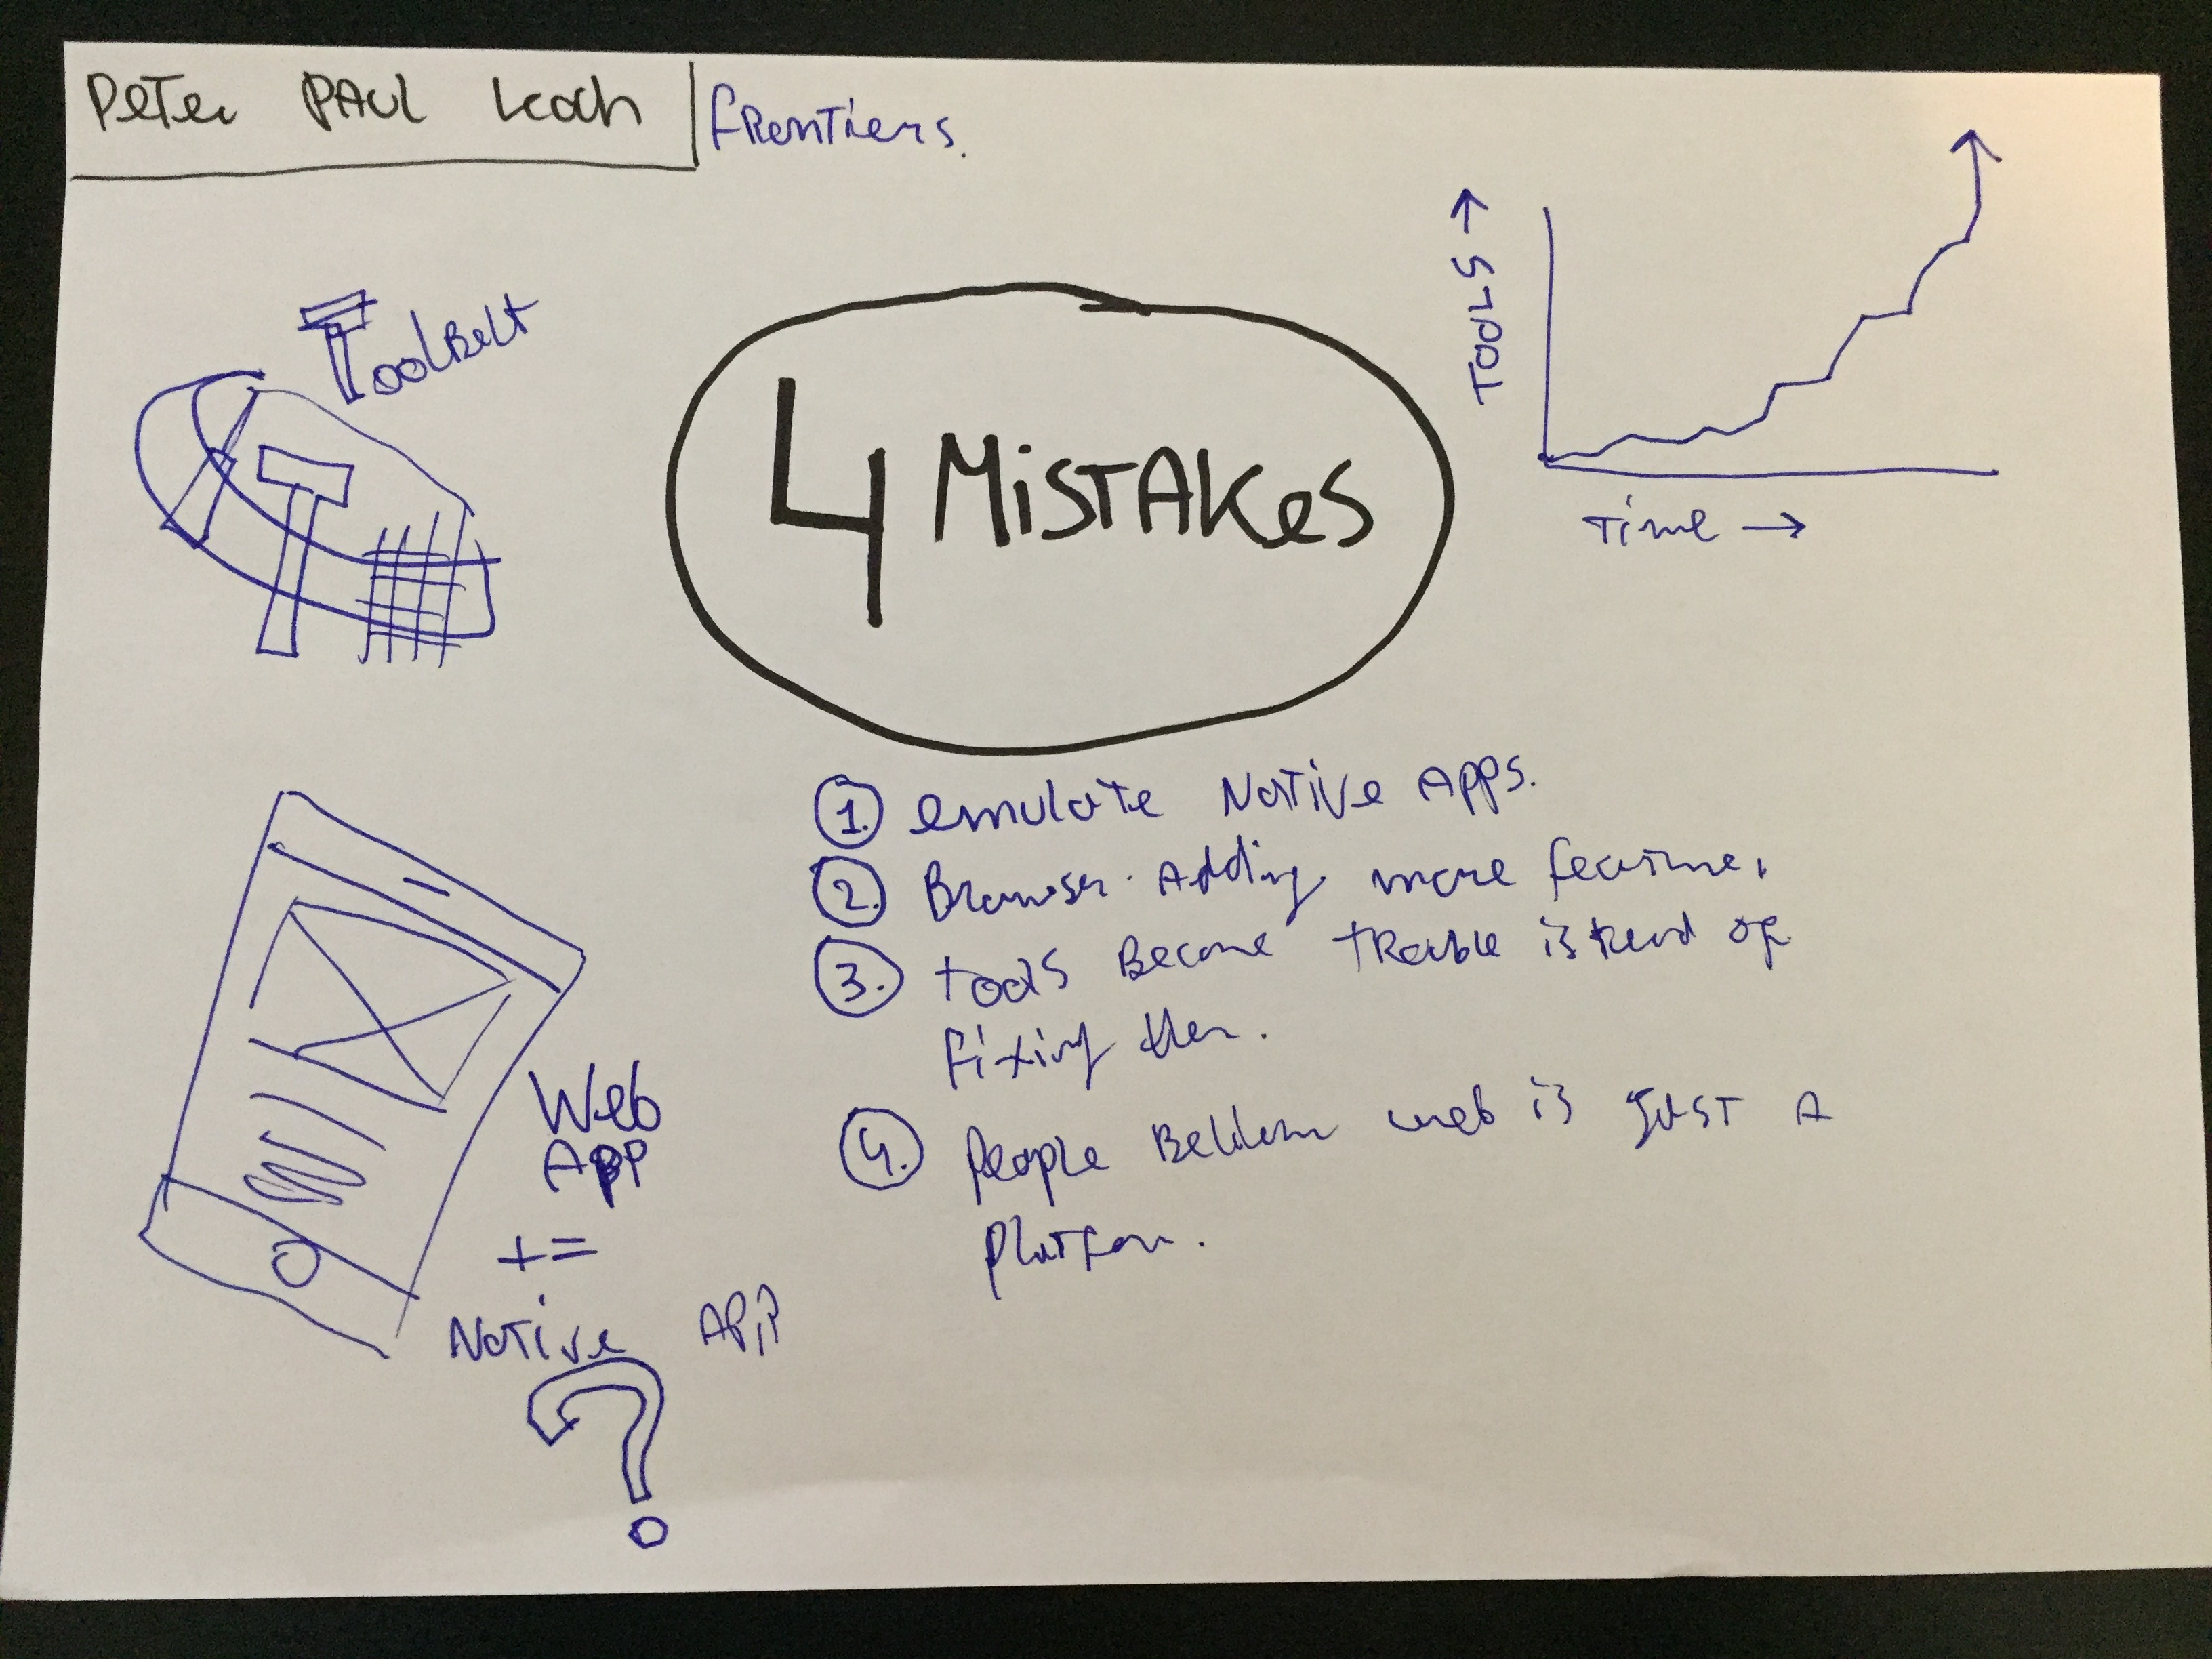 Peter Paul Koch
Frontiers.
ToolBelt
TOOLS →
Time →
4 MISTAKES
1. emulate Native Apps.
2. Browser Adding more feature.
3. tools Become trouble istead of
fixing them.
4. People web is just A
platform.
Web
App
+=
Native App
?